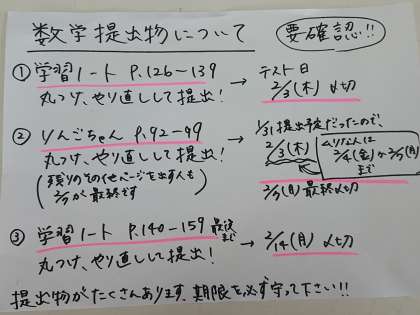 数学提出物について
要確認!!
① 学習ノート P.126-139 → テスト日
丸つけ、やり直しして提出! 2/3(木)〆切
② りんごちゃん P.92-99 → 1/31提出予定だったので、
丸つけ、やり直しして提出! 2/3(木)
ムリな人は
2/4(金)か2/7(月)
まで
(残りのその他ページを出す人も
2/7が最終です) 2/7(月)最終〆切
③ 学習ノート P.140-159 最後まで → 2/14(月)〆切
丸つけ、やり直しして提出!
提出物がたくさんあります。期限を必ず守って下さい!!